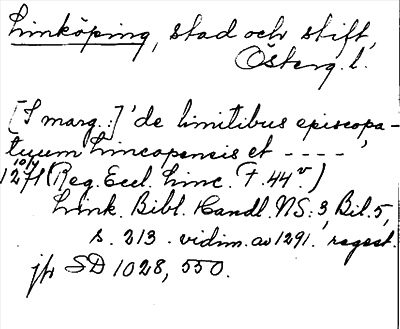 Linköping, stad och stift,
Österg. l.
[I marg.:] 'de limitibus episcopa-
tuum Lincopensis et - - - -'
10/4
1271 (Reg. Eccl. Linc. f. 44 v.)
Link. Bibl. Handl. NS: 3, Bil. 5,
s. 213. vidim. av 1291. regest.
jfr SD 1028, 550.